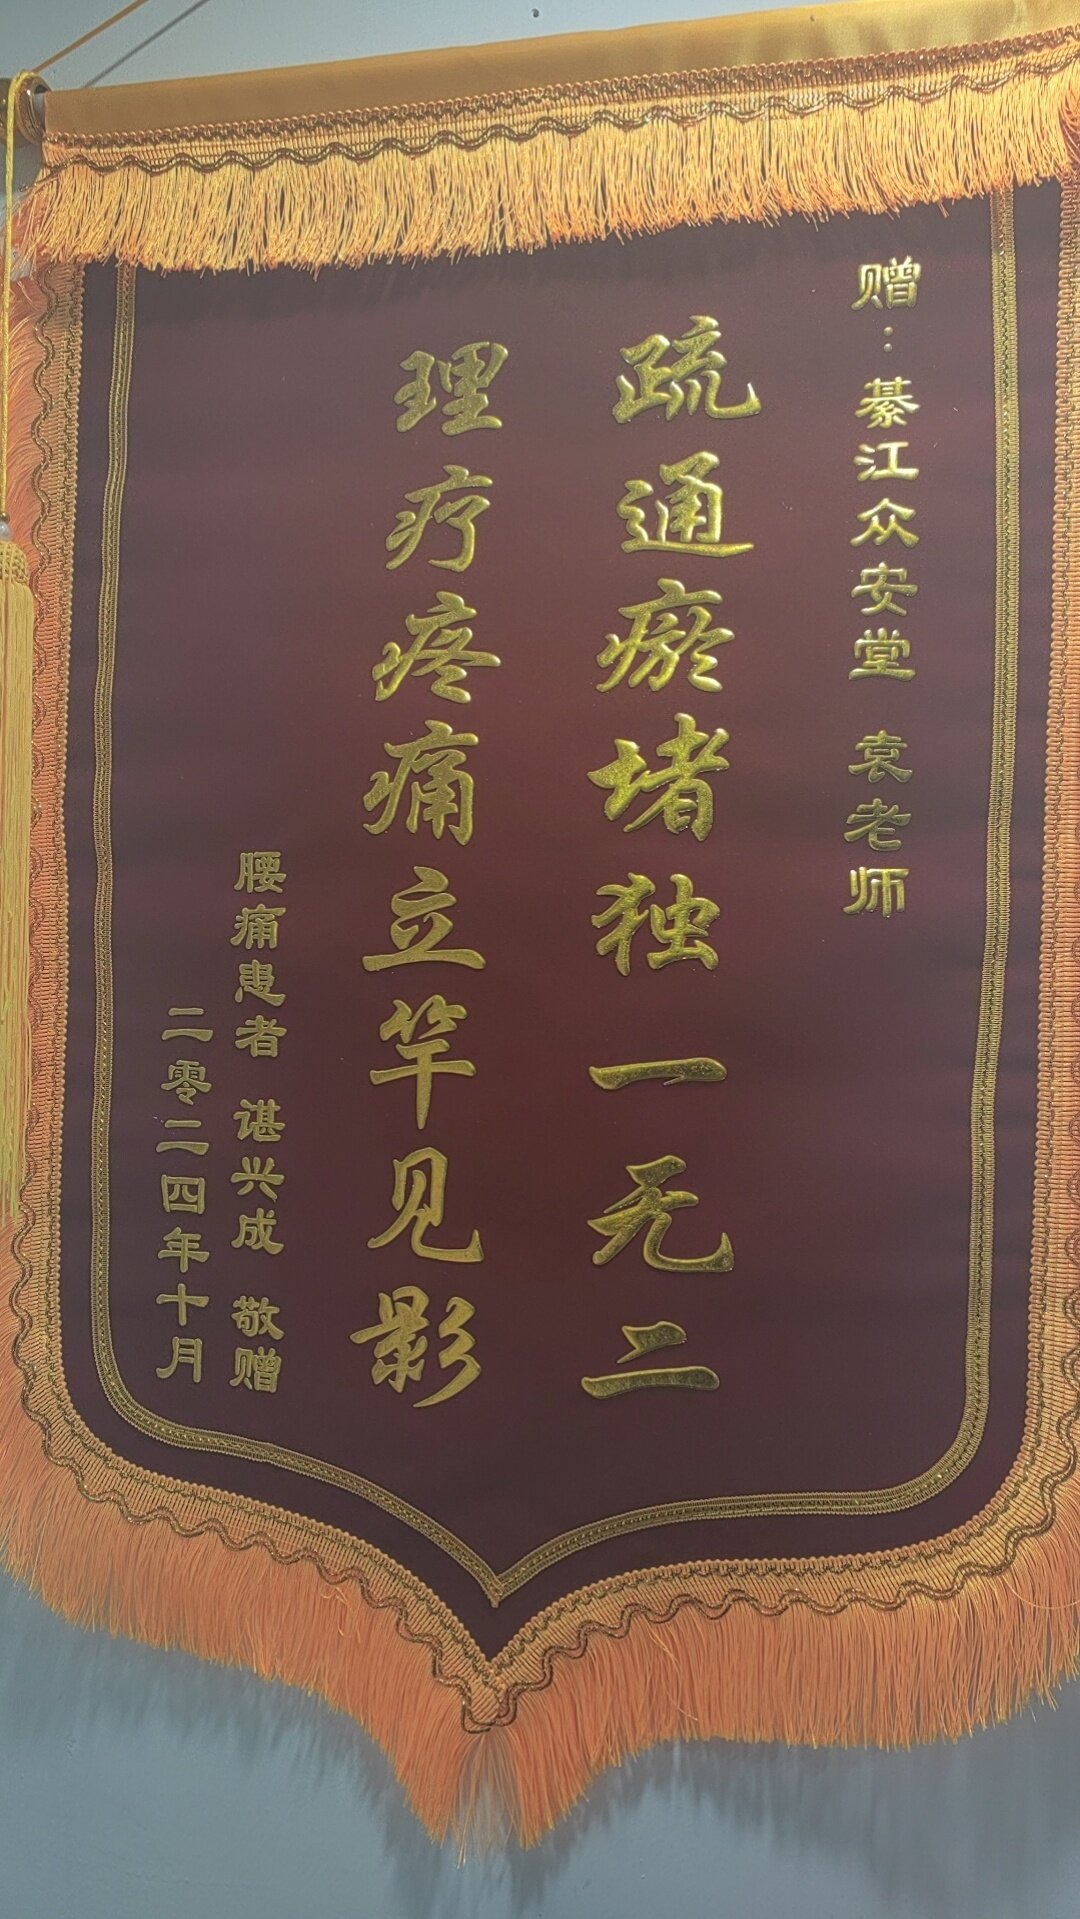 赠：綦江众安堂 袁老师
疏通瘀堵独一无二
理疗疼痛立竿见影
腰痛患者 谌兴成 敬赠
二零二四年十月